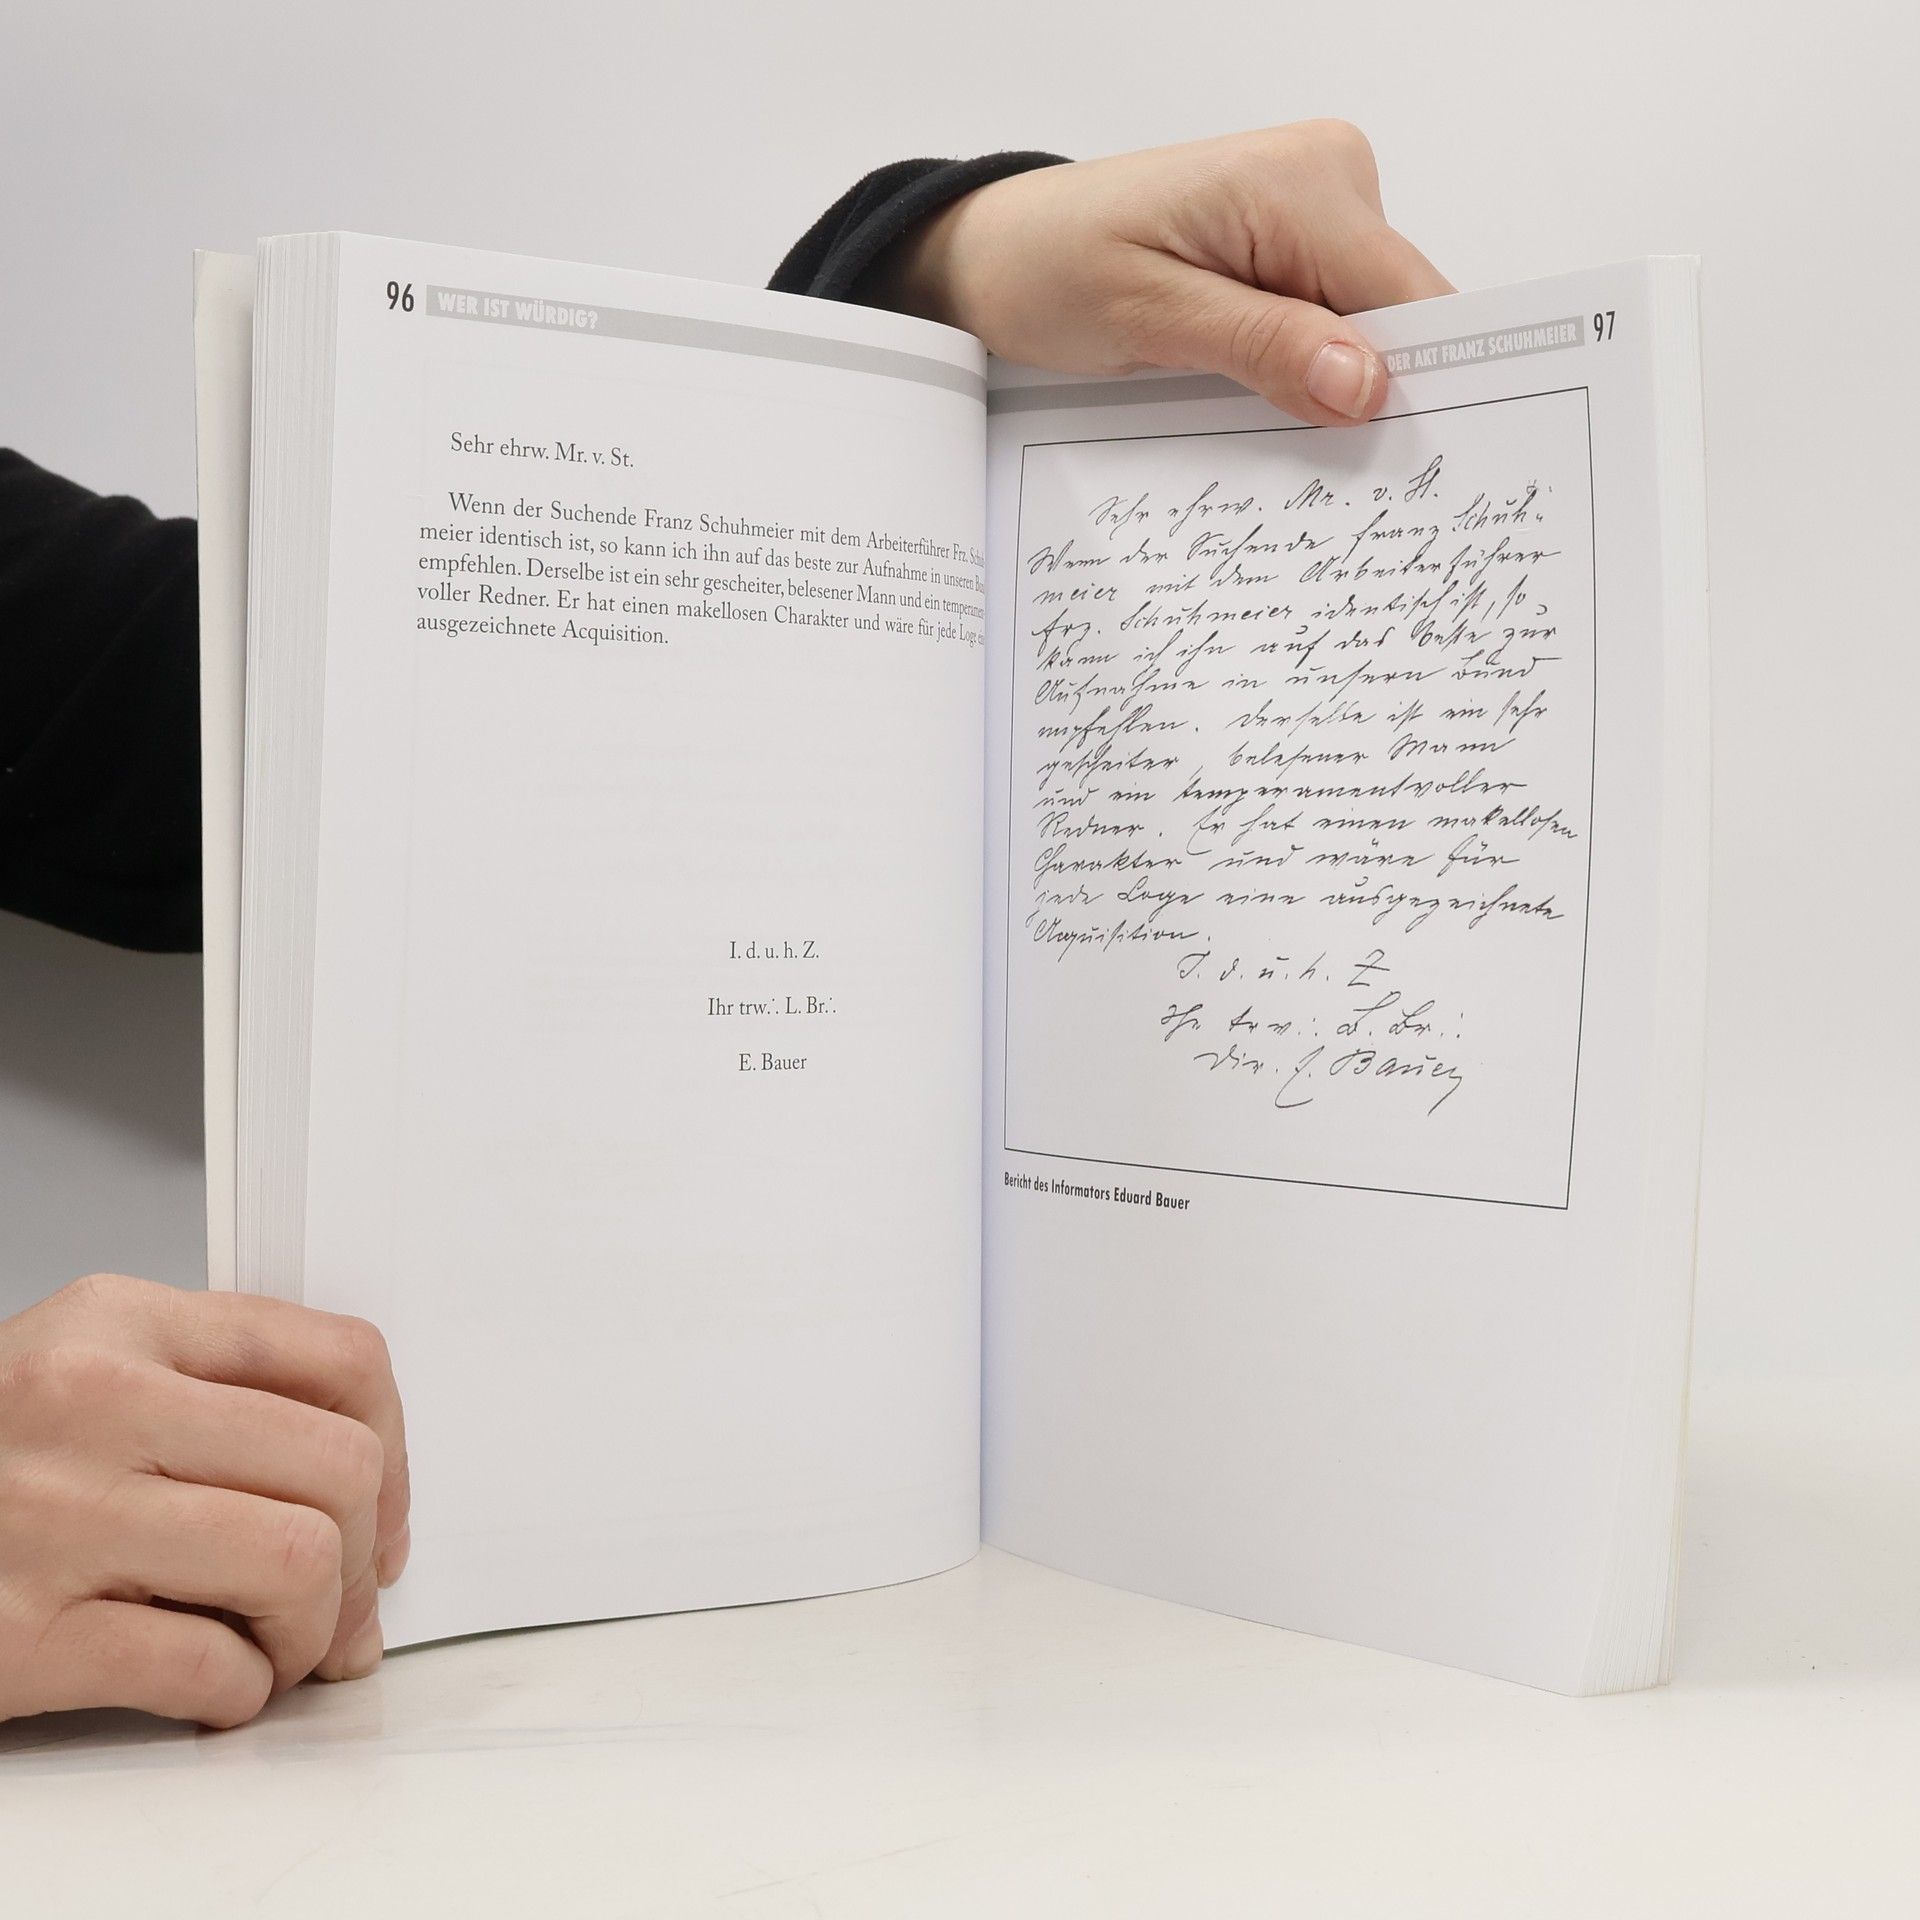 96 WER IST WÜRDIG?
Sehr ehrw. Mr. v. St.
Wenn der Suchende Franz Schuhmeier mit dem Arbeiterführer Frz.
meier identisch ist, so kann ich ihn auf das beste zur Aufnahme in unseren
empfehlen. Derselbe ist ein sehr gescheiter, belesener Mann und ein
voller Redner. Er hat einen makellosen Charakter und wäre für jede Loge
ausgezeichnete Acquisition.
I. d. u. h. Z.
Ihr trw∴ L. Br∴
E. Bauer
DER AKT FRANZ SCHUHMEIER 97
Sehr ehrw. Mr. v. St.
Wenn der Suchende Franz Schuh-
meier mit dem Arbeiterführer
Frz. Schuhmeier identisch ist, so
kann ich ihn auf das beste zur
Aufnahme in unsern Bund
empfehlen. Derselbe ist ein sehr
gescheiter, belesener Mann
und ein temperamentvoller
Redner. Er hat einen makellosen
Charakter und wäre für
jede Loge eine ausgezeichnete
Acquisition.
I. d. u. h. Z
Ihr trw∴ L. Br∴
Dir. E. Bauer
Bericht des Informators Eduard Bauer